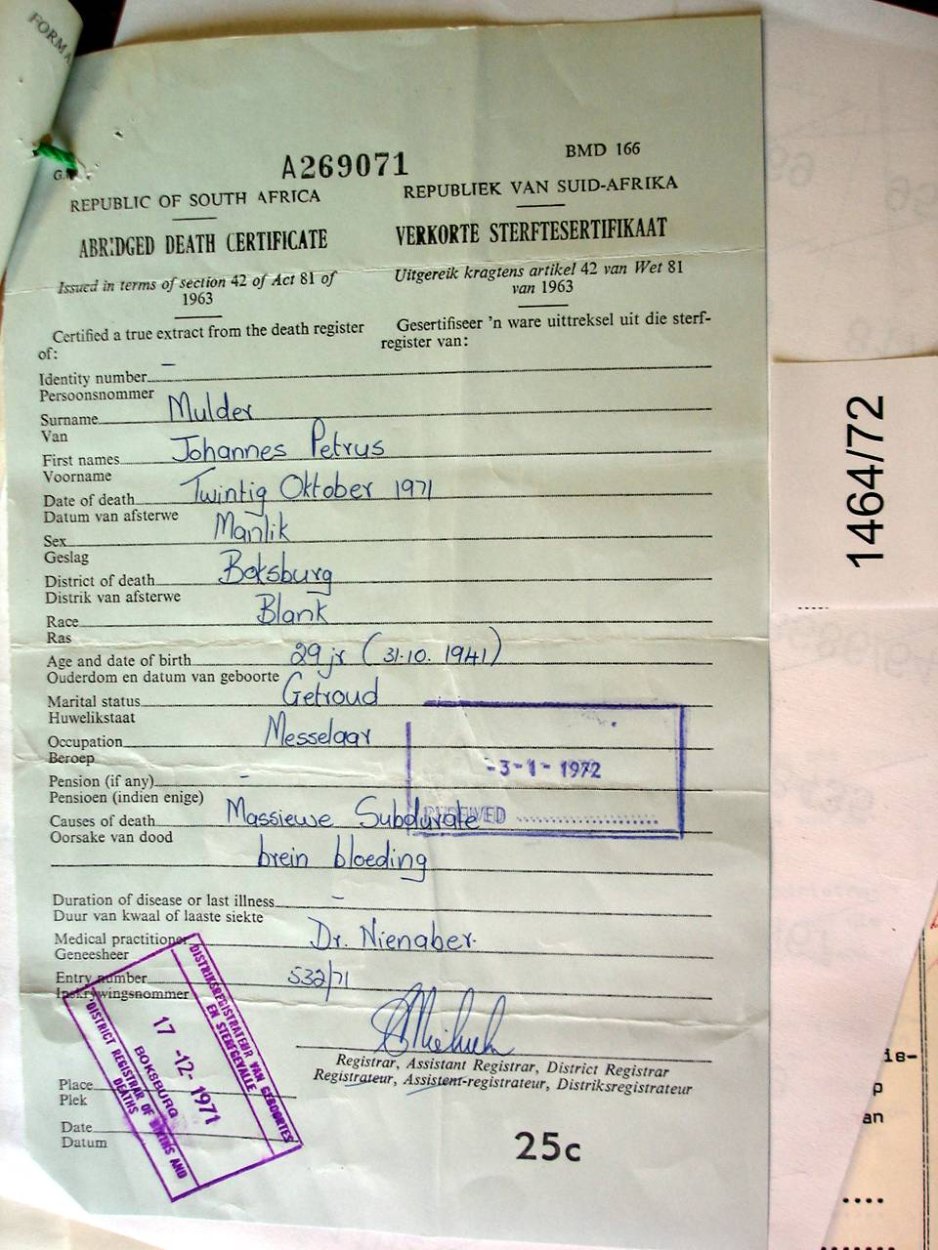 FORMA
G.
A269071
BMD 166
REPUBLIC OF SOUTH AFRICA
REPUBLIEK VAN SUID-AFRIKA
ABRIDGED DEATH CERTIFICATE
VERKORTE STERFTESERTIFIKAAT
Issued in terms of section 42 of Act 81 of
1963
Uitgereik kragtens artikel 42 van Wet 81
van 1963
Certified a true extract from the death register
of:
Gesertifiseer 'n ware uittreksel uit die sterf-
register van:
Identity number –
Persoonsnommer
Surname Mulder
Van
First names Johannes Petrus
Voorname
Date of death Twintig Oktober 1971
Datum van afsterwe
Sex Manlik
Geslag
District of death Boksburg
Distrik van afsterwe
Race Blank
Ras
Age and date of birth 29 jr (31.10. 1941)
Ouderdom en datum van geboorte
Marital status Getroud
Huwelikstaat
Occupation Messelaar
Beroep
-3-1-1972
Pension (if any) -
Pensioen (indien enige)
Causes of death Massiewe Subdurale
Oorsake van dood
brein bloeding
Duration of disease or last illness –
Duur van kwaal of laaste siekte
Medical practitioner Dr. Nienaber.
Geneesheer
Entry number 532/71
Inskrywingsnommer
Registrar, Assistant Registrar, District Registrar
Registrateur, Assistent-registrateur, Distriksregistrateur
DISTRIKSREGISTRATEUR VAN GEBOORTES
EN STERFGEVALLE
17 -12- 1971
BOKSBURG
DISTRICT REGISTRAR OF BIRTHS AND
DEATHS
Place
Plek
Date
Datum
25c
1464/72
ie-
p
an